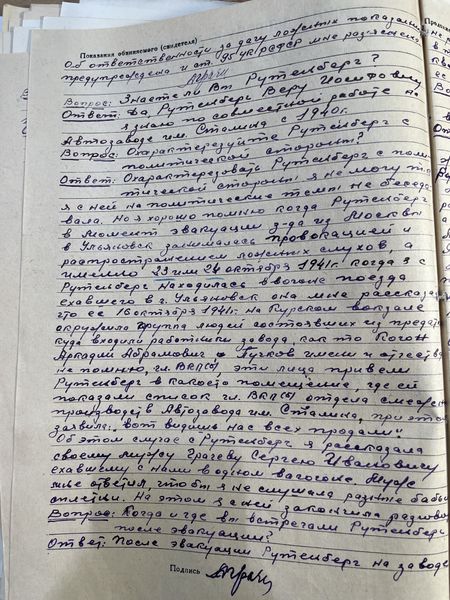 Показания обвиняемого (свидетеля)
Об ответственности за дачу ложных показаний
предупреждена и ст. 95 ук РСФСР мне раз'яснено
Вопрос: Знаете ли Вы Рутенберг?
Ответ: Да, Рутенберг Веру Иосифовну
я знаю по совместной работе на
Автозаводе им. Сталина с 1940г.
Вопрос: Охарактеризуйте Рутенберг с
политической стороны?
Ответ: Охарактеризовать Рутенберг с поли-
тической стороны я не могу т.к.
я с ней на политические темы не беседо-
вала. Но я хорошо помню когда Рутенберг
в момент эвакуации з-да из Москвы
в Ульяновск занималась провокацией и
распространением ложных слухов, а
именно 23 или 24 октября 1941г. когда я с
Рутенберг находилась в вагоне поезда
ехавшего в г. Ульяновск она мне рассказа
что ее 16 октября 1941г. на Курском вокзале
окружила группа людей состоявших из
куда входили работники завода, как то Коган
Аркадий Абрамович и Лучков имени и отчества
не помню, чл. ВКП(б) эти лица привели
Рутенберг в какое то помещение, где ей
показали список чл. ВКП(б) отдела
производств Автозавода им. Сталина, при этом
заявили: вот видишь нас всех продали!
Об этом случае с Рутенберг я рассказала
своему мужу Грачеву Сергею Ивановичу
ехавшему с нами в одном вагоне. Муж
мне ответил, чтобы я не слушала разные бабьи
сплетни. На этом я с ней закончила разговор
Вопрос: Когда и где вы встречали Рутенберг
после эвакуации?
Ответ: После эвакуации Рутенберг на заводе
Подпись